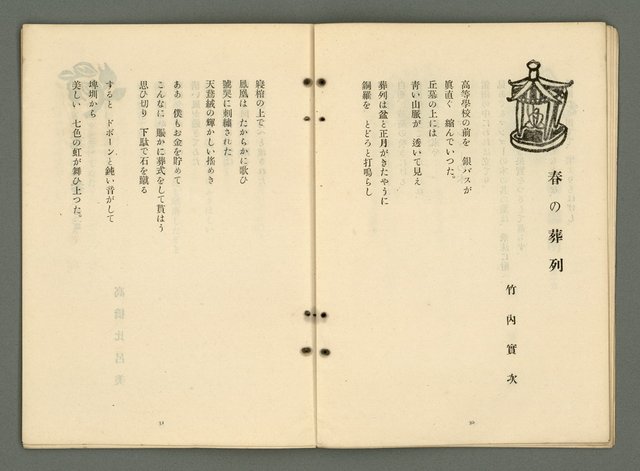 春の葬列
竹内實次
高等學校の前を 銀バスが
眞直ぐ 縮んでいつた。
丘墓の上には
靑い山脈が 透いて見え
葬列は盆と正月がきたやうに
銅羅を とどろと打鳴らし
30
寢棺の上で
鳳凰は たからかに歌ひ
號哭に刺繡された
天鵞絨の輝かしい搖めき
ああ 僕もお金を貯めて
こんなに 賑かに葬式をして貰はう
思ひ切り 下駄で石を蹴る
すると ドボーンと鈍い音がして
埤圳から
美しい 七色の虹が舞ひ上つた。
31